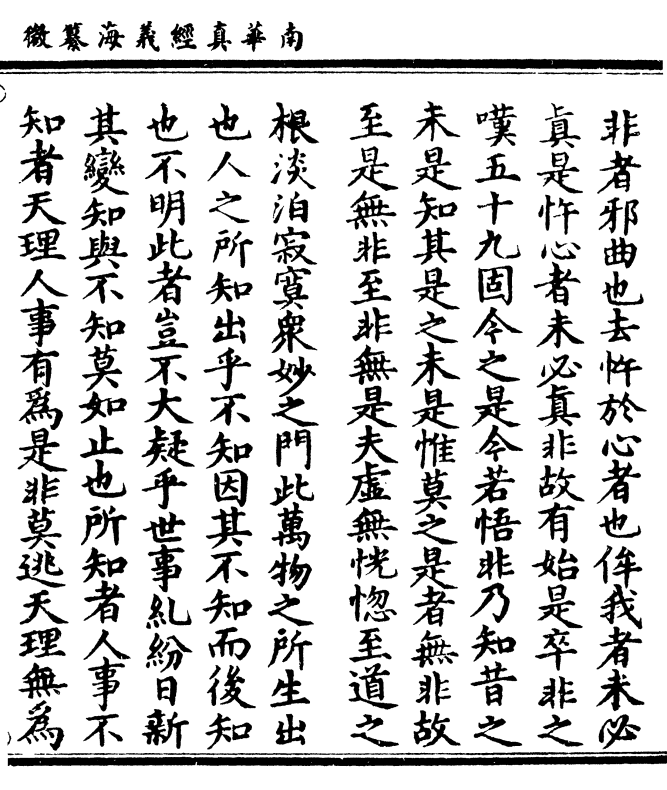 南華真經義海纂微
非者邪曲也去忤於心者也侔我者未必
真是忤心者未必真非故有始是卒非之
嘆五十九固今之是今若悟非乃知昔之
未是知其是之未是惟莫之是者無非故
至是無非至非無是夫虛無恍惚至道之
根淡泊寂寞衆妙之門此萬物之所生出
也人之所知出乎不知因其不知而後知
也不明此者豈不大疑乎世事糺紛日新
其變知與不知莫如止也所知者人事不
知者天理人事有爲是非莫逃天理無爲